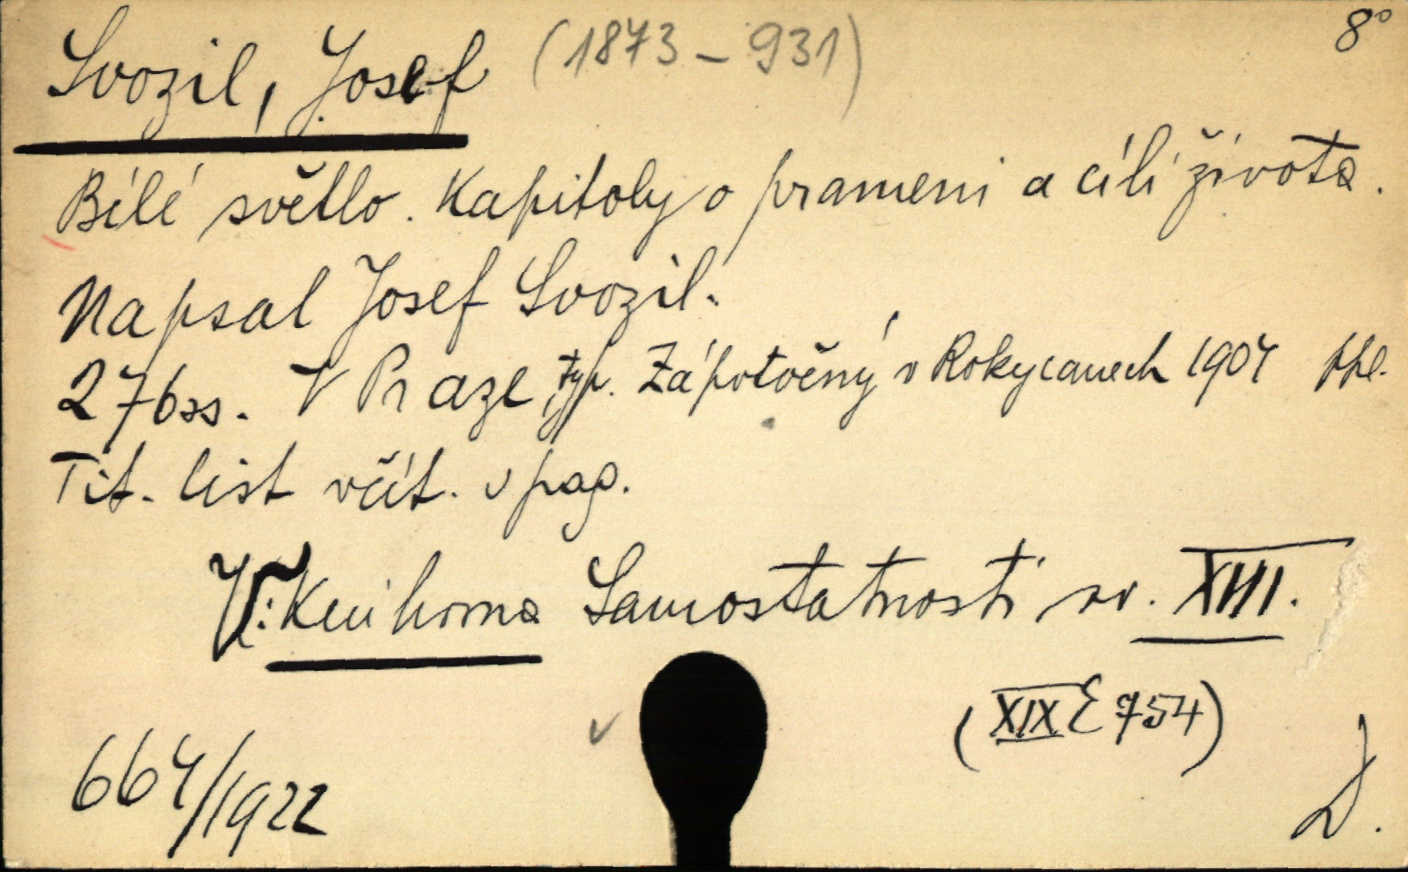 8°
Svozil, Josef (1873-931)
Bílé světlo. Kapitoly o prameni a cíli života.
Napsal Josef Svozil.
276 ss. V Praze, typ. Zápotočný v Rokycanech 1907 ppl.
Tit. list včít. v pag.
V: Knihovna Samostatnosti sv. XIII.
(XIX E 754)
664/1922
D.